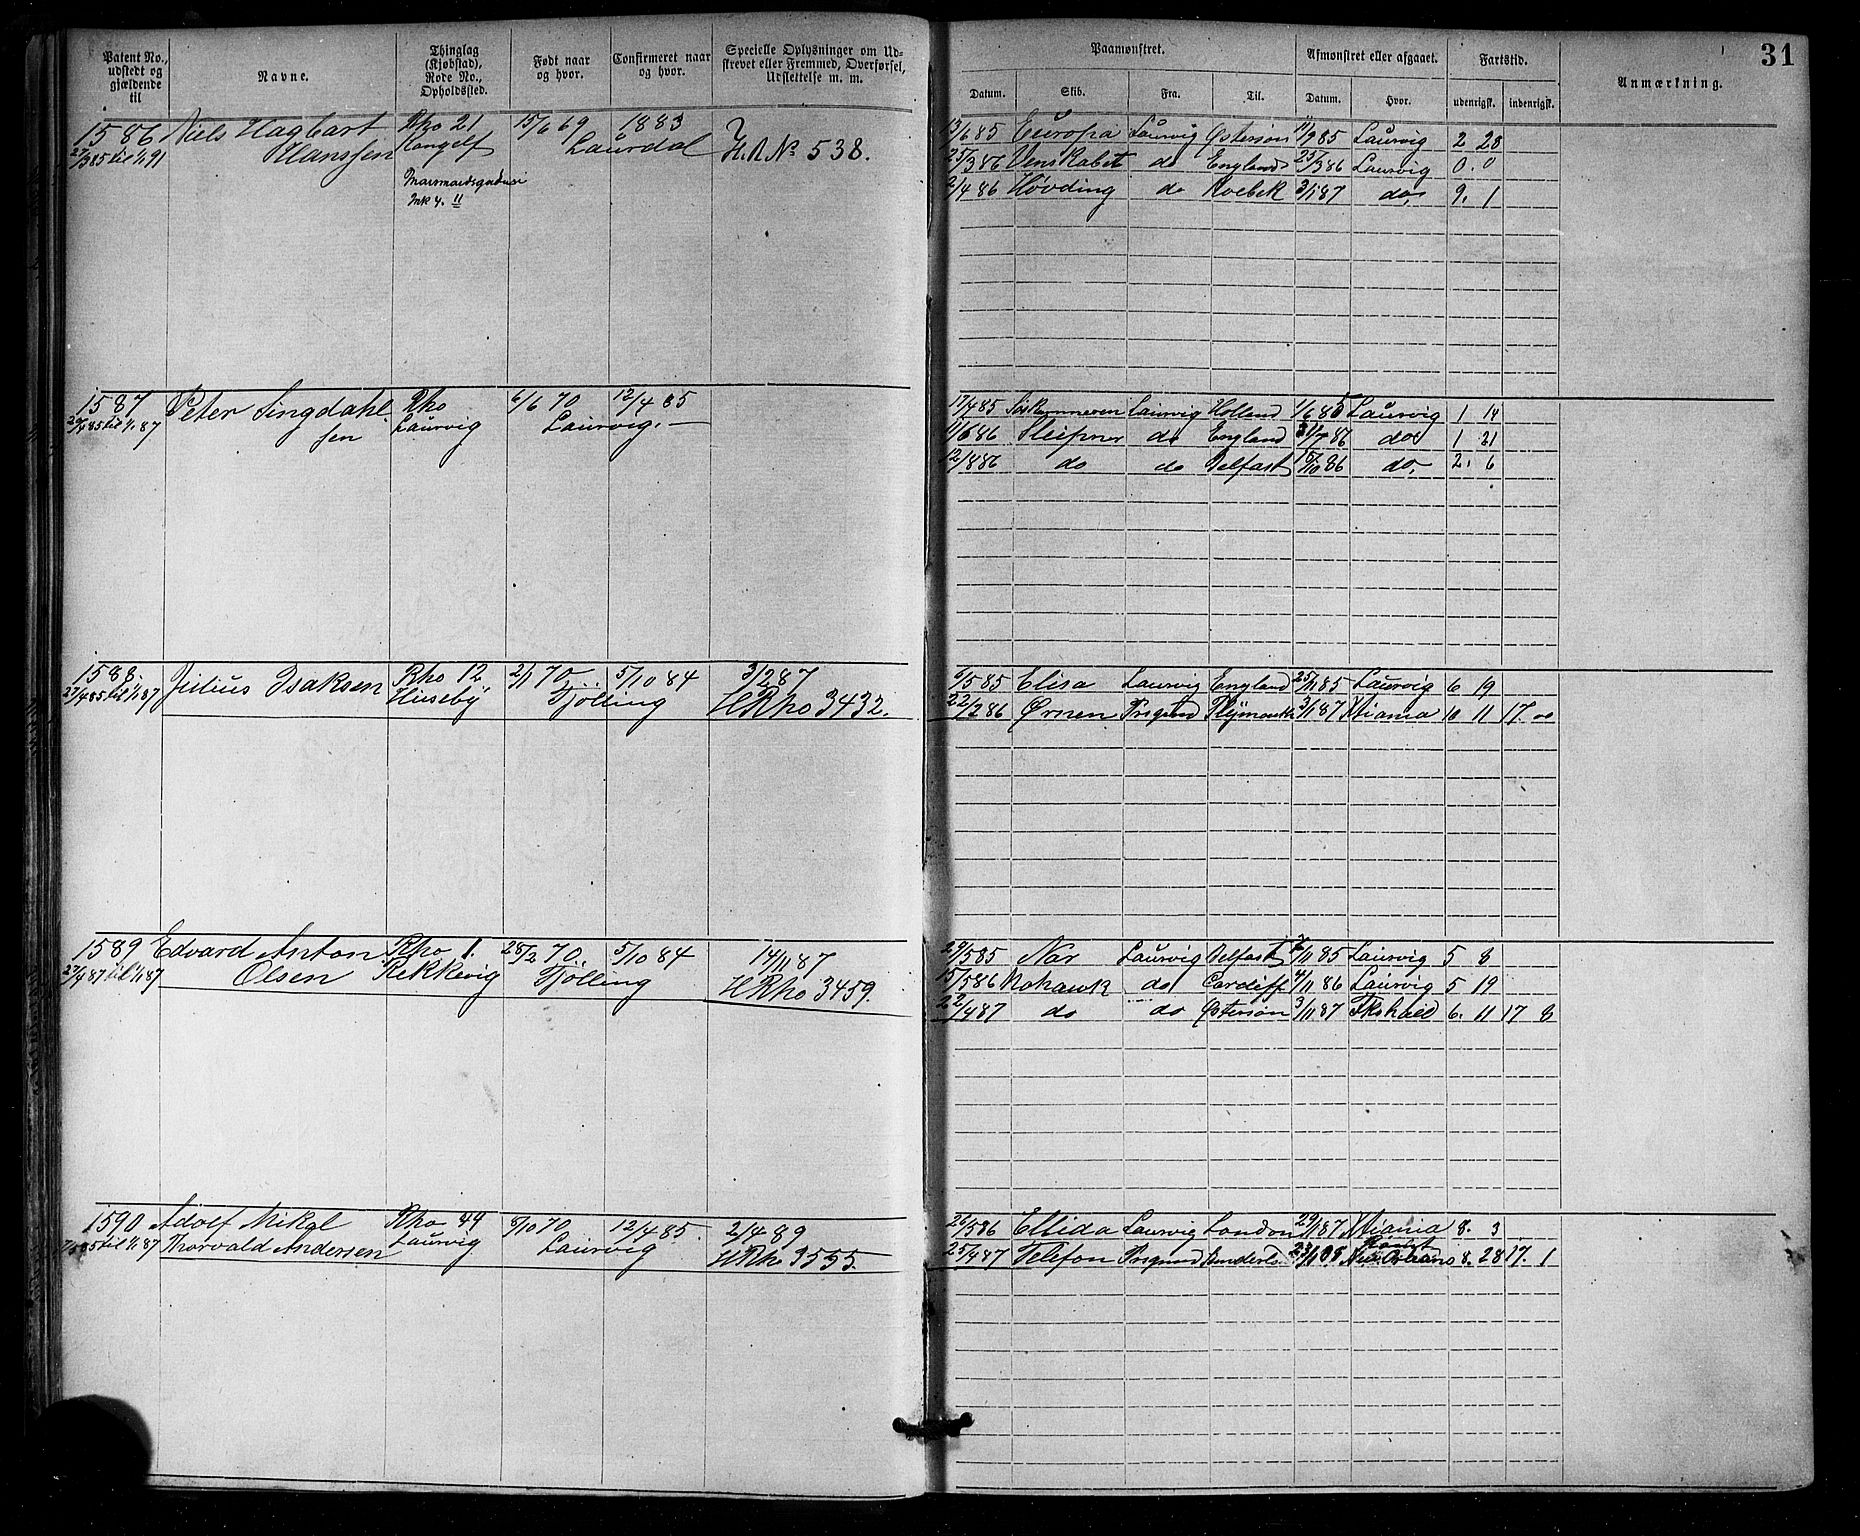 31
Patent No., udstedt og gjældende til
Navne.
Thinglag (Kjøbstad), Rode No., Opholdssted.
Født naar og hvor.
Confirmeret naar og hvor.
Specielle Oplysninger om Udskrevet eller Fremmed, Overførsel, Udslettelse m. m.
Paamønstret.
Afmønstret eller afgaaet.
Fartstid.
Anmærkning.
Datum. Skib. Fra. Til. Datum. Hvor. udenrigsk. indenrigsk.
1586 Niels Hagbart Rho 21 15/6 69 1883
27/385 til 1/1 91 Hanssen Laurdal H.R No 538.
Mk 4. 11
13/6 85 Europa Laurvig Østersøn 11/9 85 Laurvig 2 28
25/3 86 Venskabet do England 25/3 86 Laurvig 0. 0
2/4 86 Høvding do 3/1 87 do, 9. 1
1587 Peter Singdahl Rho 6/6 70 12/4 85
til 1/1 87 sen Laurvig Laurvig. —
17/4 85 Laurvig Holland 1/6 85 Laurvig 1 14
11/6 86 Sleipner do England 31/7 86 do 1 21
12/8 86 do do Belfast 15/10 86 do, 2. 6
1588. Julius Isaksen Rho 12 2/1 70. 5/10 84 3/2 87
27/4 85 til 1/1 87 Huseby Tjölling HRho 3432.
6/5 85 Elisa Laurvig England 25/11 85 Laurvig 6 19
22/2 86 Ørnen Prsgrund Plymouth 3/1 87 Xtiania 10 11 17. 00
1589 Edvard Anton Rho 1. 28/2 70. 5/10 84 14/11 87
27/4 87 til 1/1 87 Olsen Rekkevig Tjölling HRho 3459.
29/5 85 Nar Laurvig Belfast 7/11 85 Laurvig 5 8
15/5 86 Mohawk do Cardiff 4/11 86 Laurvig 5 19
22/4 87 do do Østersøn 3/11 87 Fkshald 6. 11 17 8
1590 Adolf Mikal Rho 44 8/10 70 12/4 85. 2/4 89
7/5 85 til 1/1 87 Thorvald Andersen Laurvig Laurvig HRho 3535.
26/5 86 Ellida Laurvig London 29/1 87 Xtiania 8. 3
25/4 87 Telefon Prsgrund New Orleans 8. 28 17. 1